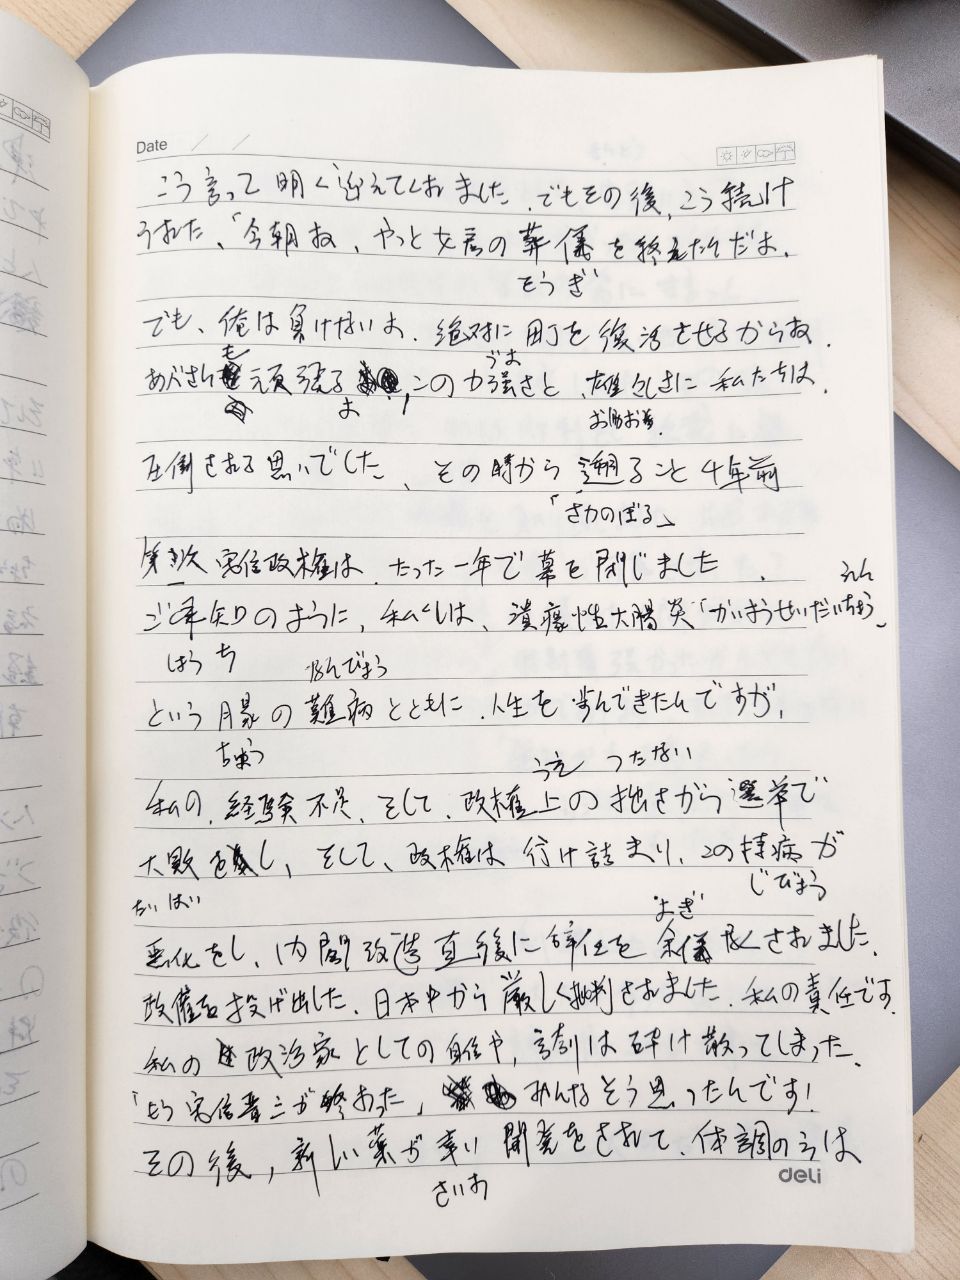 Date / /
こう言って明く迎えてくれました。でもその後、こう続け
られた、「今朝ね、やっと女房の葬儀を終えたんだよ。
そうぎ
でも、俺は負けないよ。絶対に町を復活させるからね。
も うよ
あべさん 頑張る ,この力強さと、雄々しさに私たちは、
よ おおお
圧倒される思いでした、その時から遡ること4年前
「さかのぼる」
第一次安倍政権は、たった一年で幕を閉じました。
えん
ご承知のように、私くしは、潰瘍性大腸炎「かいようせいだいちょう」
しょうち なんびょう
という腸の難病とともに、人生を歩んできたんですが、
ちょう うえ つたない
私の、経験不足、そして、政権上の拙さから選挙で
大敗をし、そして、政権は行け詰まり、この持病が
たいはい じびょう
よぎ
悪化をし、内閣改造直後に辞任を余儀なくされました。
政権を投げ出した。日本中から厳しく批判されました。私の責任です。
私の政治家としての自信や、誇りは砕け散ってしまった。
「もう安倍晋三が終わった」みんなそう思ったんです!
その後,新しい薬が幸い開発をされて、体調のうは
さいわ
deli